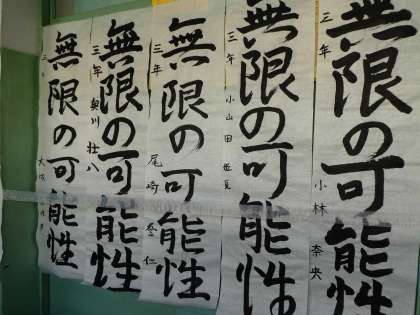 無限の可能性
三年
小林 奈央
無限の可能性
三年
小山田
無限の可能性
三年
尾崎
無限の可能性
三年
奥川 壮八
無限の可能性
三年